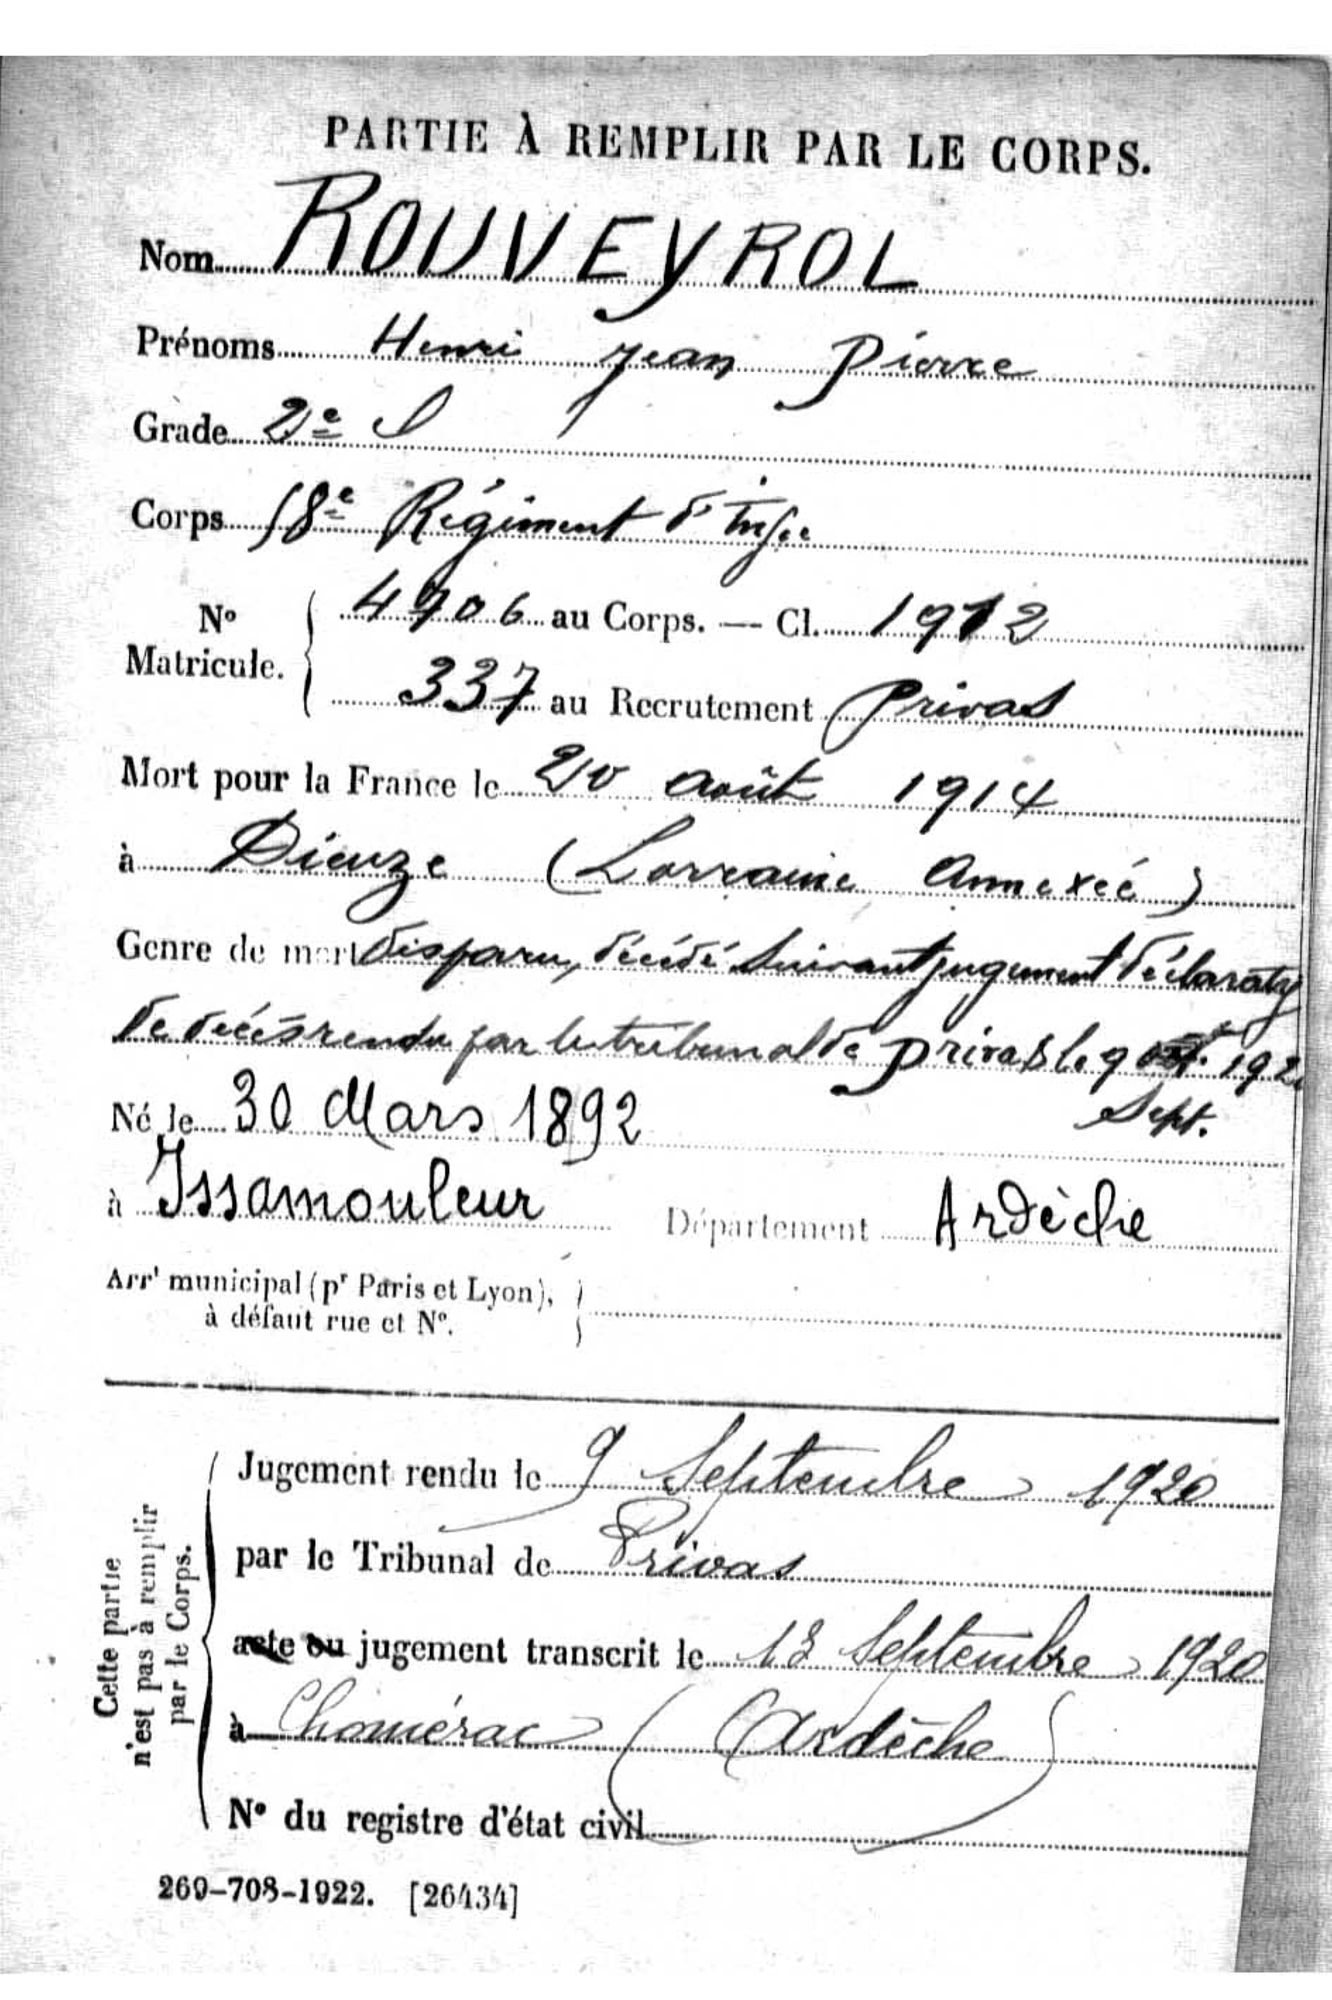 PARTIE À REMPLIR PAR LE CORPS.
Nom ROUVEYROL
Prénoms Henri Jean Pierre
Grade 2e S
Corps 58e Régiment d'Infie
No Matricule. 4906 au Corps. — Cl. 1912
337 au Recrutement Privas
Mort pour la France le 20 août 1914
à Dieuze (Lorraine Annexée)
Genre de mort disparu, décédé suivant jugement déclaratif
de décès rendu par le tribunal de Privas le 9 1920
Sept.
Né le 30 Mars 1892
à Issamouleur Département Ardèche
Arrt municipal (pr Paris et Lyon),
à défaut rue et No.
Cette partie
n'est pas à remplir
par le Corps.
Jugement rendu le 9 Septembre 1920
par le Tribunal de Privas
acte ou jugement transcrit le 13 Septembre 1920
à Chomérac (Ardèche)
No du registre d'état civil
269-708-1922. [26434]